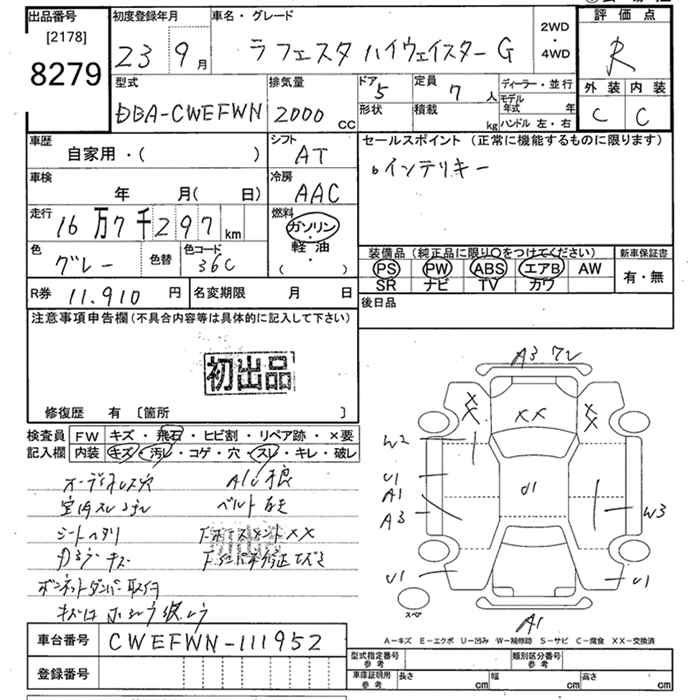 出品番号 初度登録年月 車名・グレード 2WD・4WD 評価点
[2178]
8279 23 9月 ラフェスタ ハイウェイスター G R
型式 排気量 ドア 5 定員 7人 ディーラー・並行 外装 内装
DBA-CWEFWN 2000 cc 形状 積載 kg モデル年式 年 C C
ハンドル 左・右
車歴 シフト セールスポイント (正常に機能するものに限ります)
自家用・( ) AT インテリキー
車検 冷房
年 月( 日) AAC
走行 燃料
16万7千297km ガソリン・軽油 ( ・ )
色 色替 色コード 装備品(純正品に限り〇をつけてください) 新車保証書
グレー 36C PS PW ABS エアB AW 有・無
SR ナビ TV カワ
R券 11.910円 名変期限 月 日 後日品
注意事項申告欄(不具合内容等は具体的に記入して下さい)
初出品
修復歴 有 [箇所 ]
検査員 FW キズ・飛石・ヒビ割・リペア跡・×要
記入欄 内装 キズ・汚レ・コゲ・穴・スレ・キレ・破レ
オーディオレス穴
シートヘタリ
ボンネットダンパー取付
A3
XX XX XX
W2
U1 U1
A1
A3 W3
U1 U1
スペア A1
A-キズ E-エクボ U-凹み W-補修跡 S-サビ C-腐食 XX-交換済
車台番号 CWEFWN-111952 型式指定番号 参考 類別区分番号 参考
登録番号 車庫証明用 参考 長さ cm 幅 cm 高さ cm